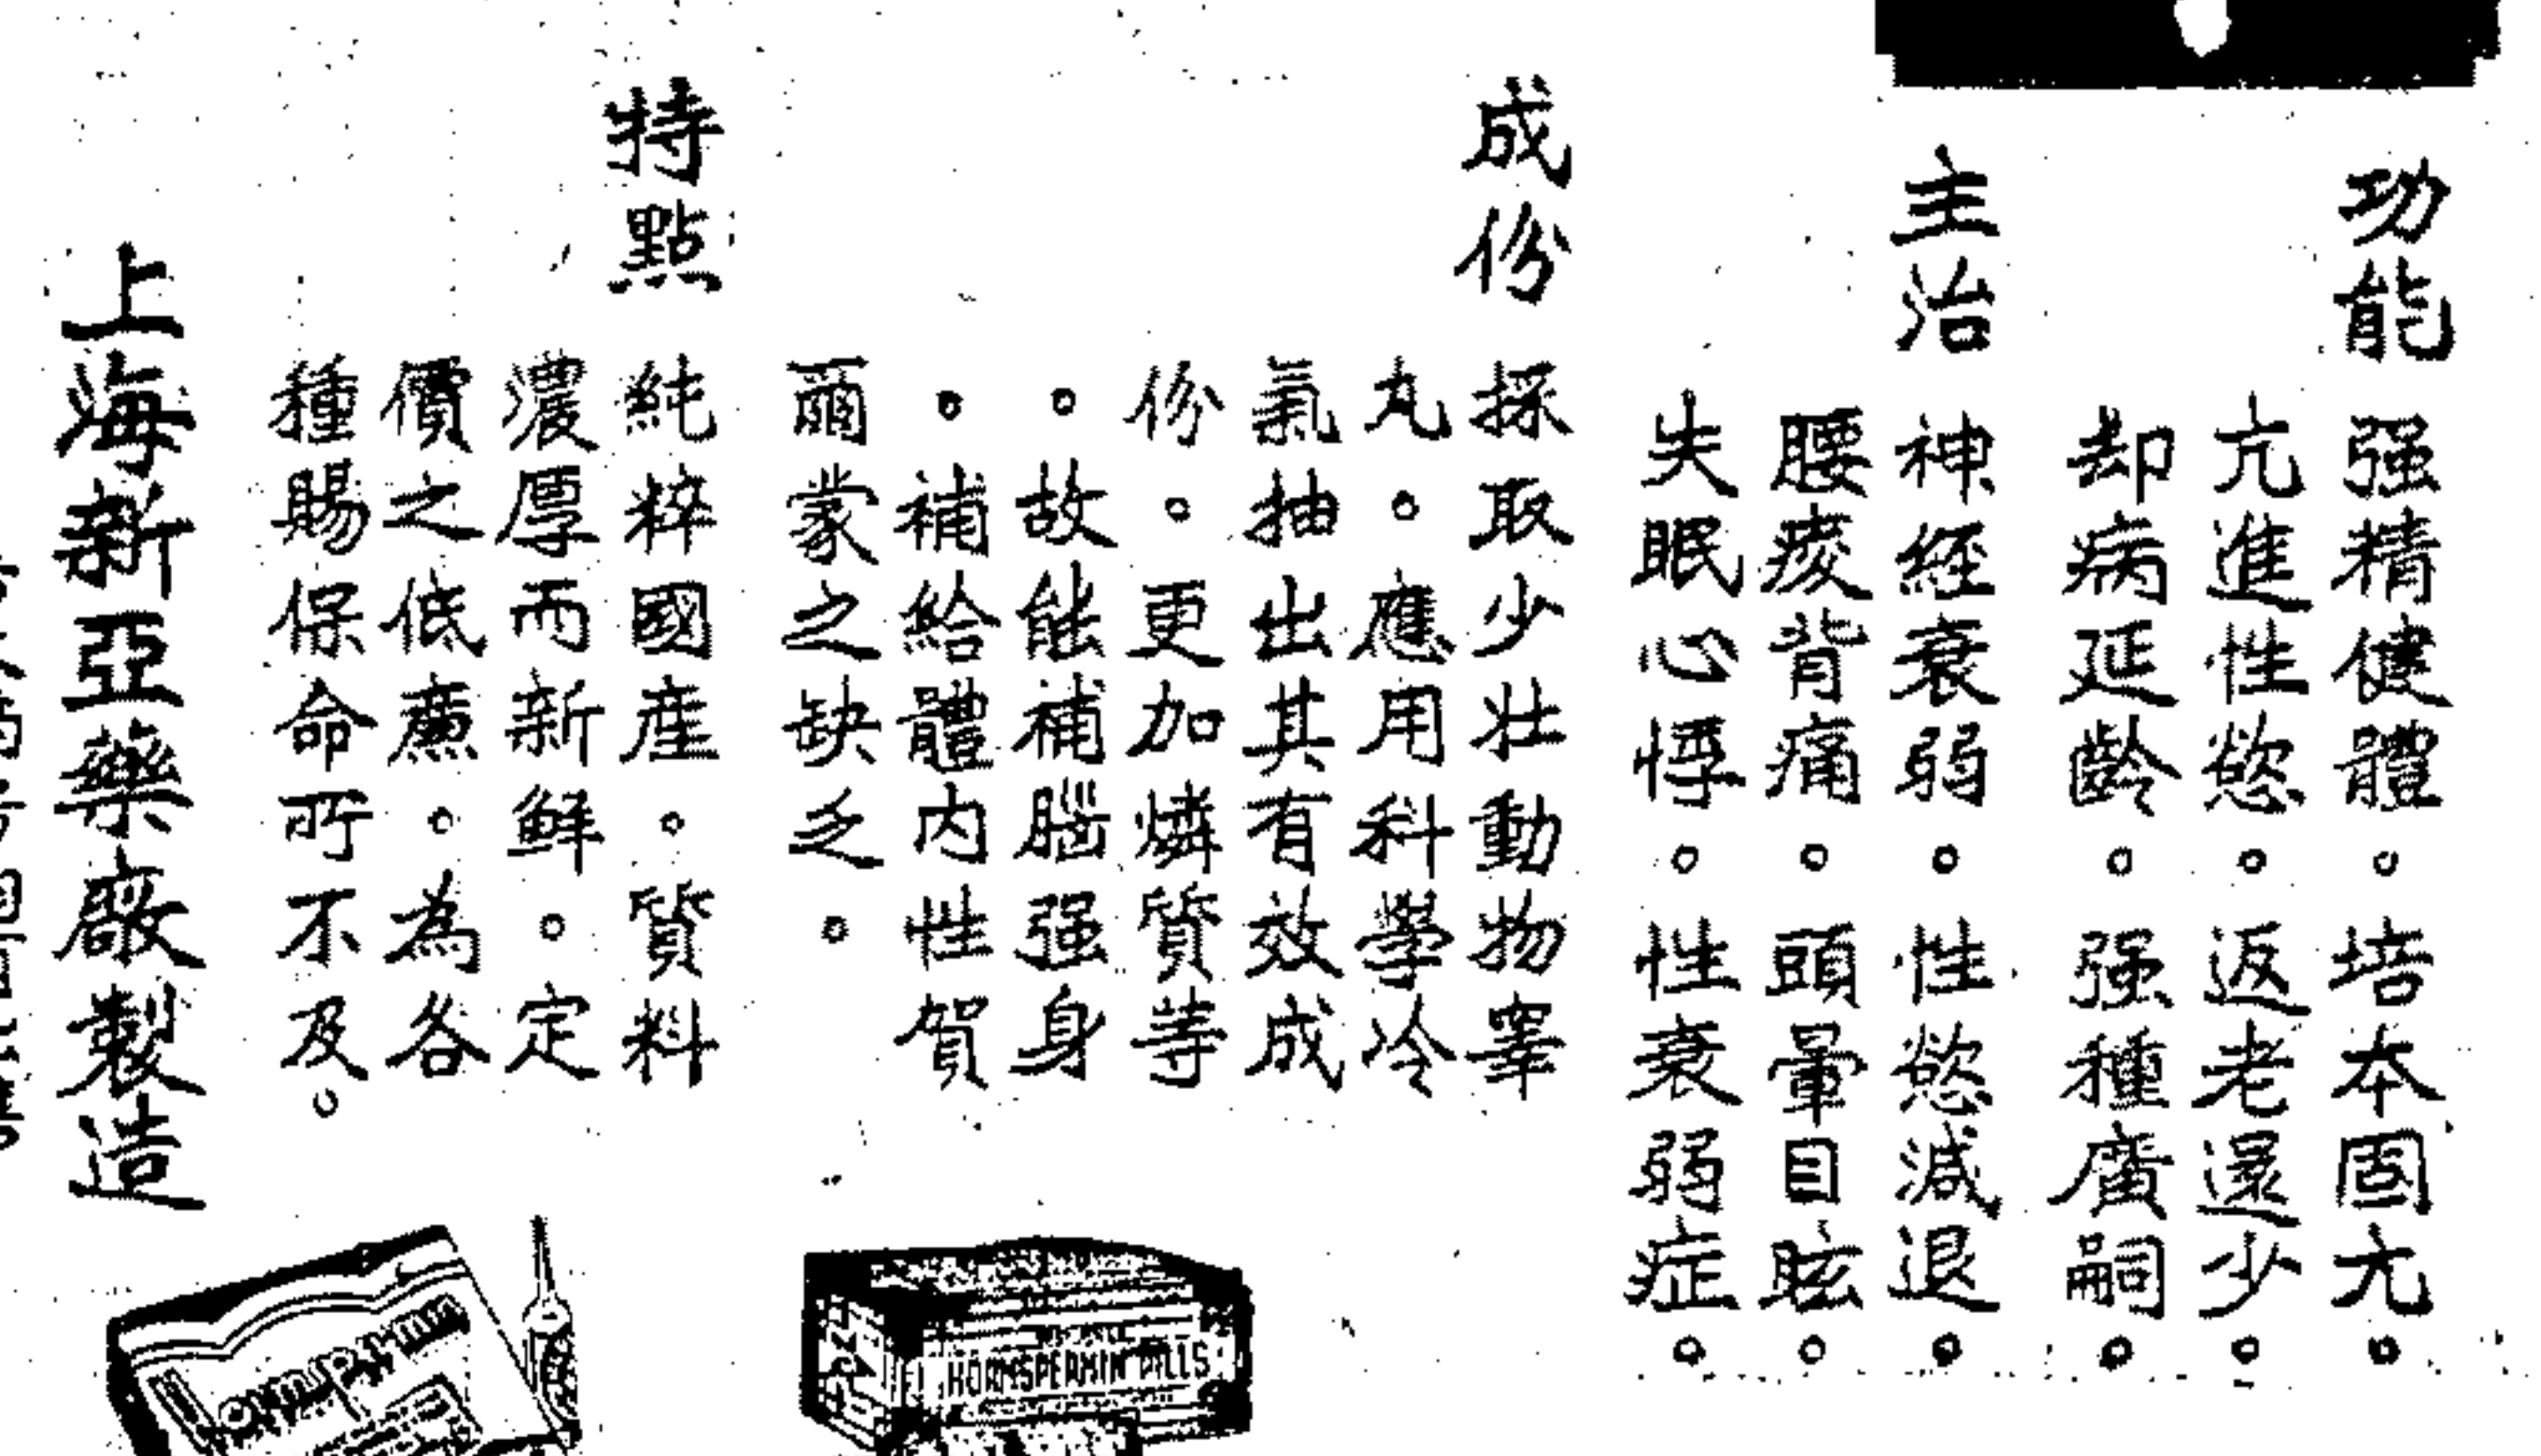 功能
强精健體。培本固元。
亢進性慾。返老還少。
却病延齡。强種廣嗣。
主治
神經衰弱。性慾減退。
腰痠背痛。頭暈目眩。
失眠心悸。性衰弱症。
成份
採取少壯動物睪
丸。應用科學冷
氣抽出其有效成
份。更加燐質等
。故能補腦强身
。補給體內性賀
爾蒙之缺乏。
特點
純粹國產。質料
濃厚而新鮮。定
價之低廉。為各
種賜保命所不及。
上海新亞藥廠製造
HORMSPERMIN PILLS